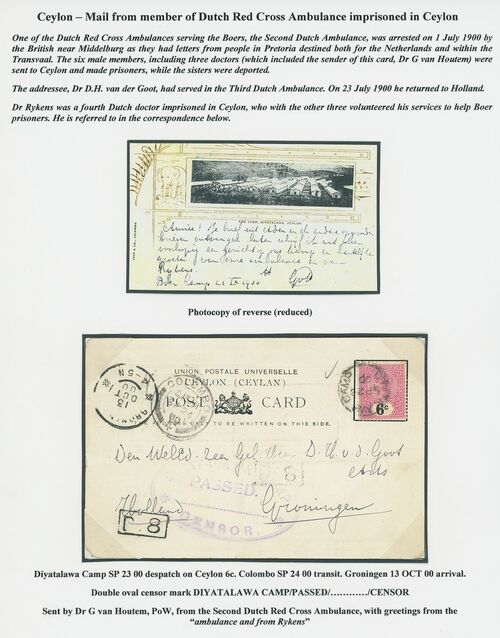 Ceylon – Mail from member of Dutch Red Cross Ambulance imprisoned in Ceylon
One of the Dutch Red Cross Ambulances serving the Boers, the Second Dutch Ambulance, was arrested on 1 July 1900 by
the British near Middelburg as they had letters from people in Pretoria destined both for the Netherlands and within the
Transvaal. The six male members, including three doctors (which included the sender of this card, Dr G van Houtem) were
sent to Ceylon and made prisoners, while the sisters were deported.
The addressee, Dr D.H. van der Goot, had served in the Third Dutch Ambulance. On 23 July 1900 he returned to Holland.
Dr Rykens was a fourth Dutch doctor imprisoned in Ceylon, who with the other three volunteered his services to help Boer
prisoners. He is referred to in the correspondence below.
THE CAMP, DIYATALAWA, CEYLON.
Amice! Je brief met
ambulance en van
Rykens.
Boer Camp 21 IX 1900
Photocopy of reverse (reduced)
UNION POSTALE UNIVERSELLE
CEYLON (CEYLAN)
POST CARD
ADDRESS ONLY TO BE WRITTEN ON THIS SIDE.
4-5N
13
OCT
00
COLOMBO
6c
Den Weled. Zeer Gel. Heer D. H. v. d. Goot
Arts
PASSED.
8
Holland Groningen
CENSOR.
F. 8
Diyatalawa Camp SP 23 00 despatch on Ceylon 6c. Colombo SP 24 00 transit. Groningen 13 OCT 00 arrival.
Double oval censor mark DIYATALAWA CAMP/PASSED/............/CENSOR
Sent by Dr G van Houtem, PoW, from the Second Dutch Red Cross Ambulance, with greetings from the
“ambulance and from Rykens”